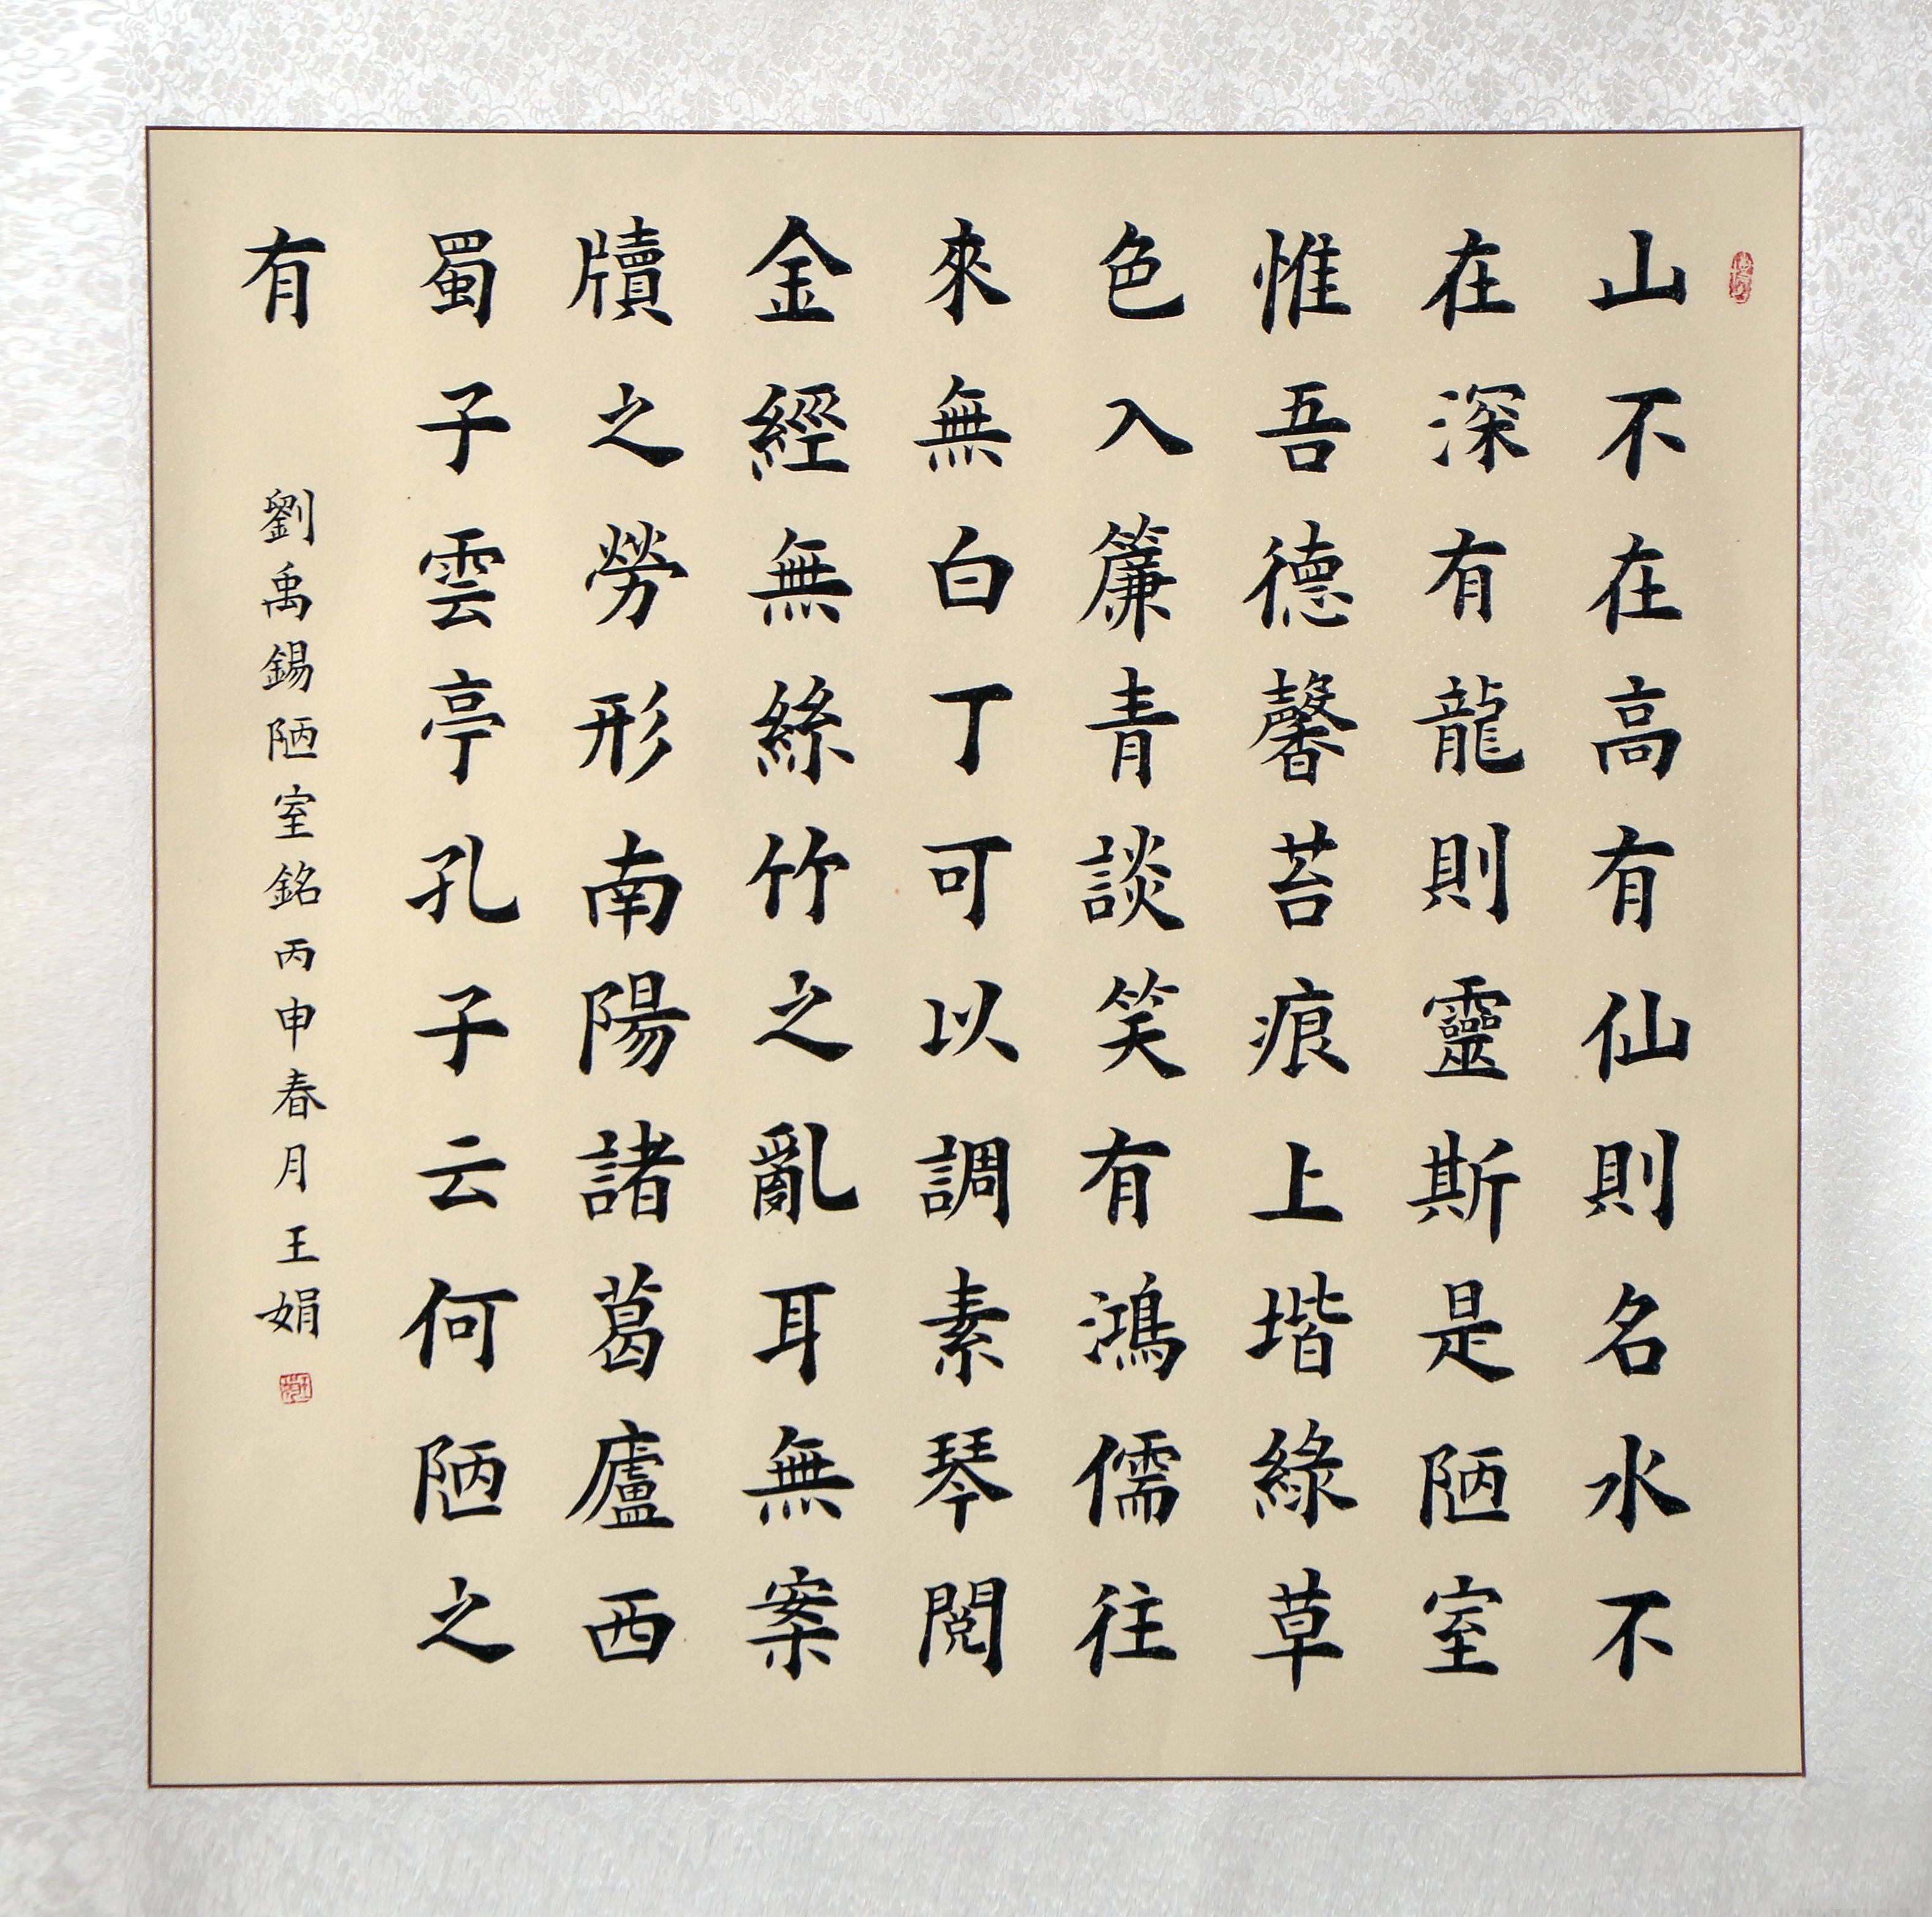 山不在高有仙則名水不
在深有龍則靈斯是陋室
惟吾德馨苔痕上堦綠草
色入簾青談笑有鴻儒往
來無白丁可以調素琴閱
金經無絲竹之亂耳無案
牘之勞形南陽諸葛廬西
蜀子雲亭孔子云何陋之
有
劉禹錫陋室銘丙申春月王娟